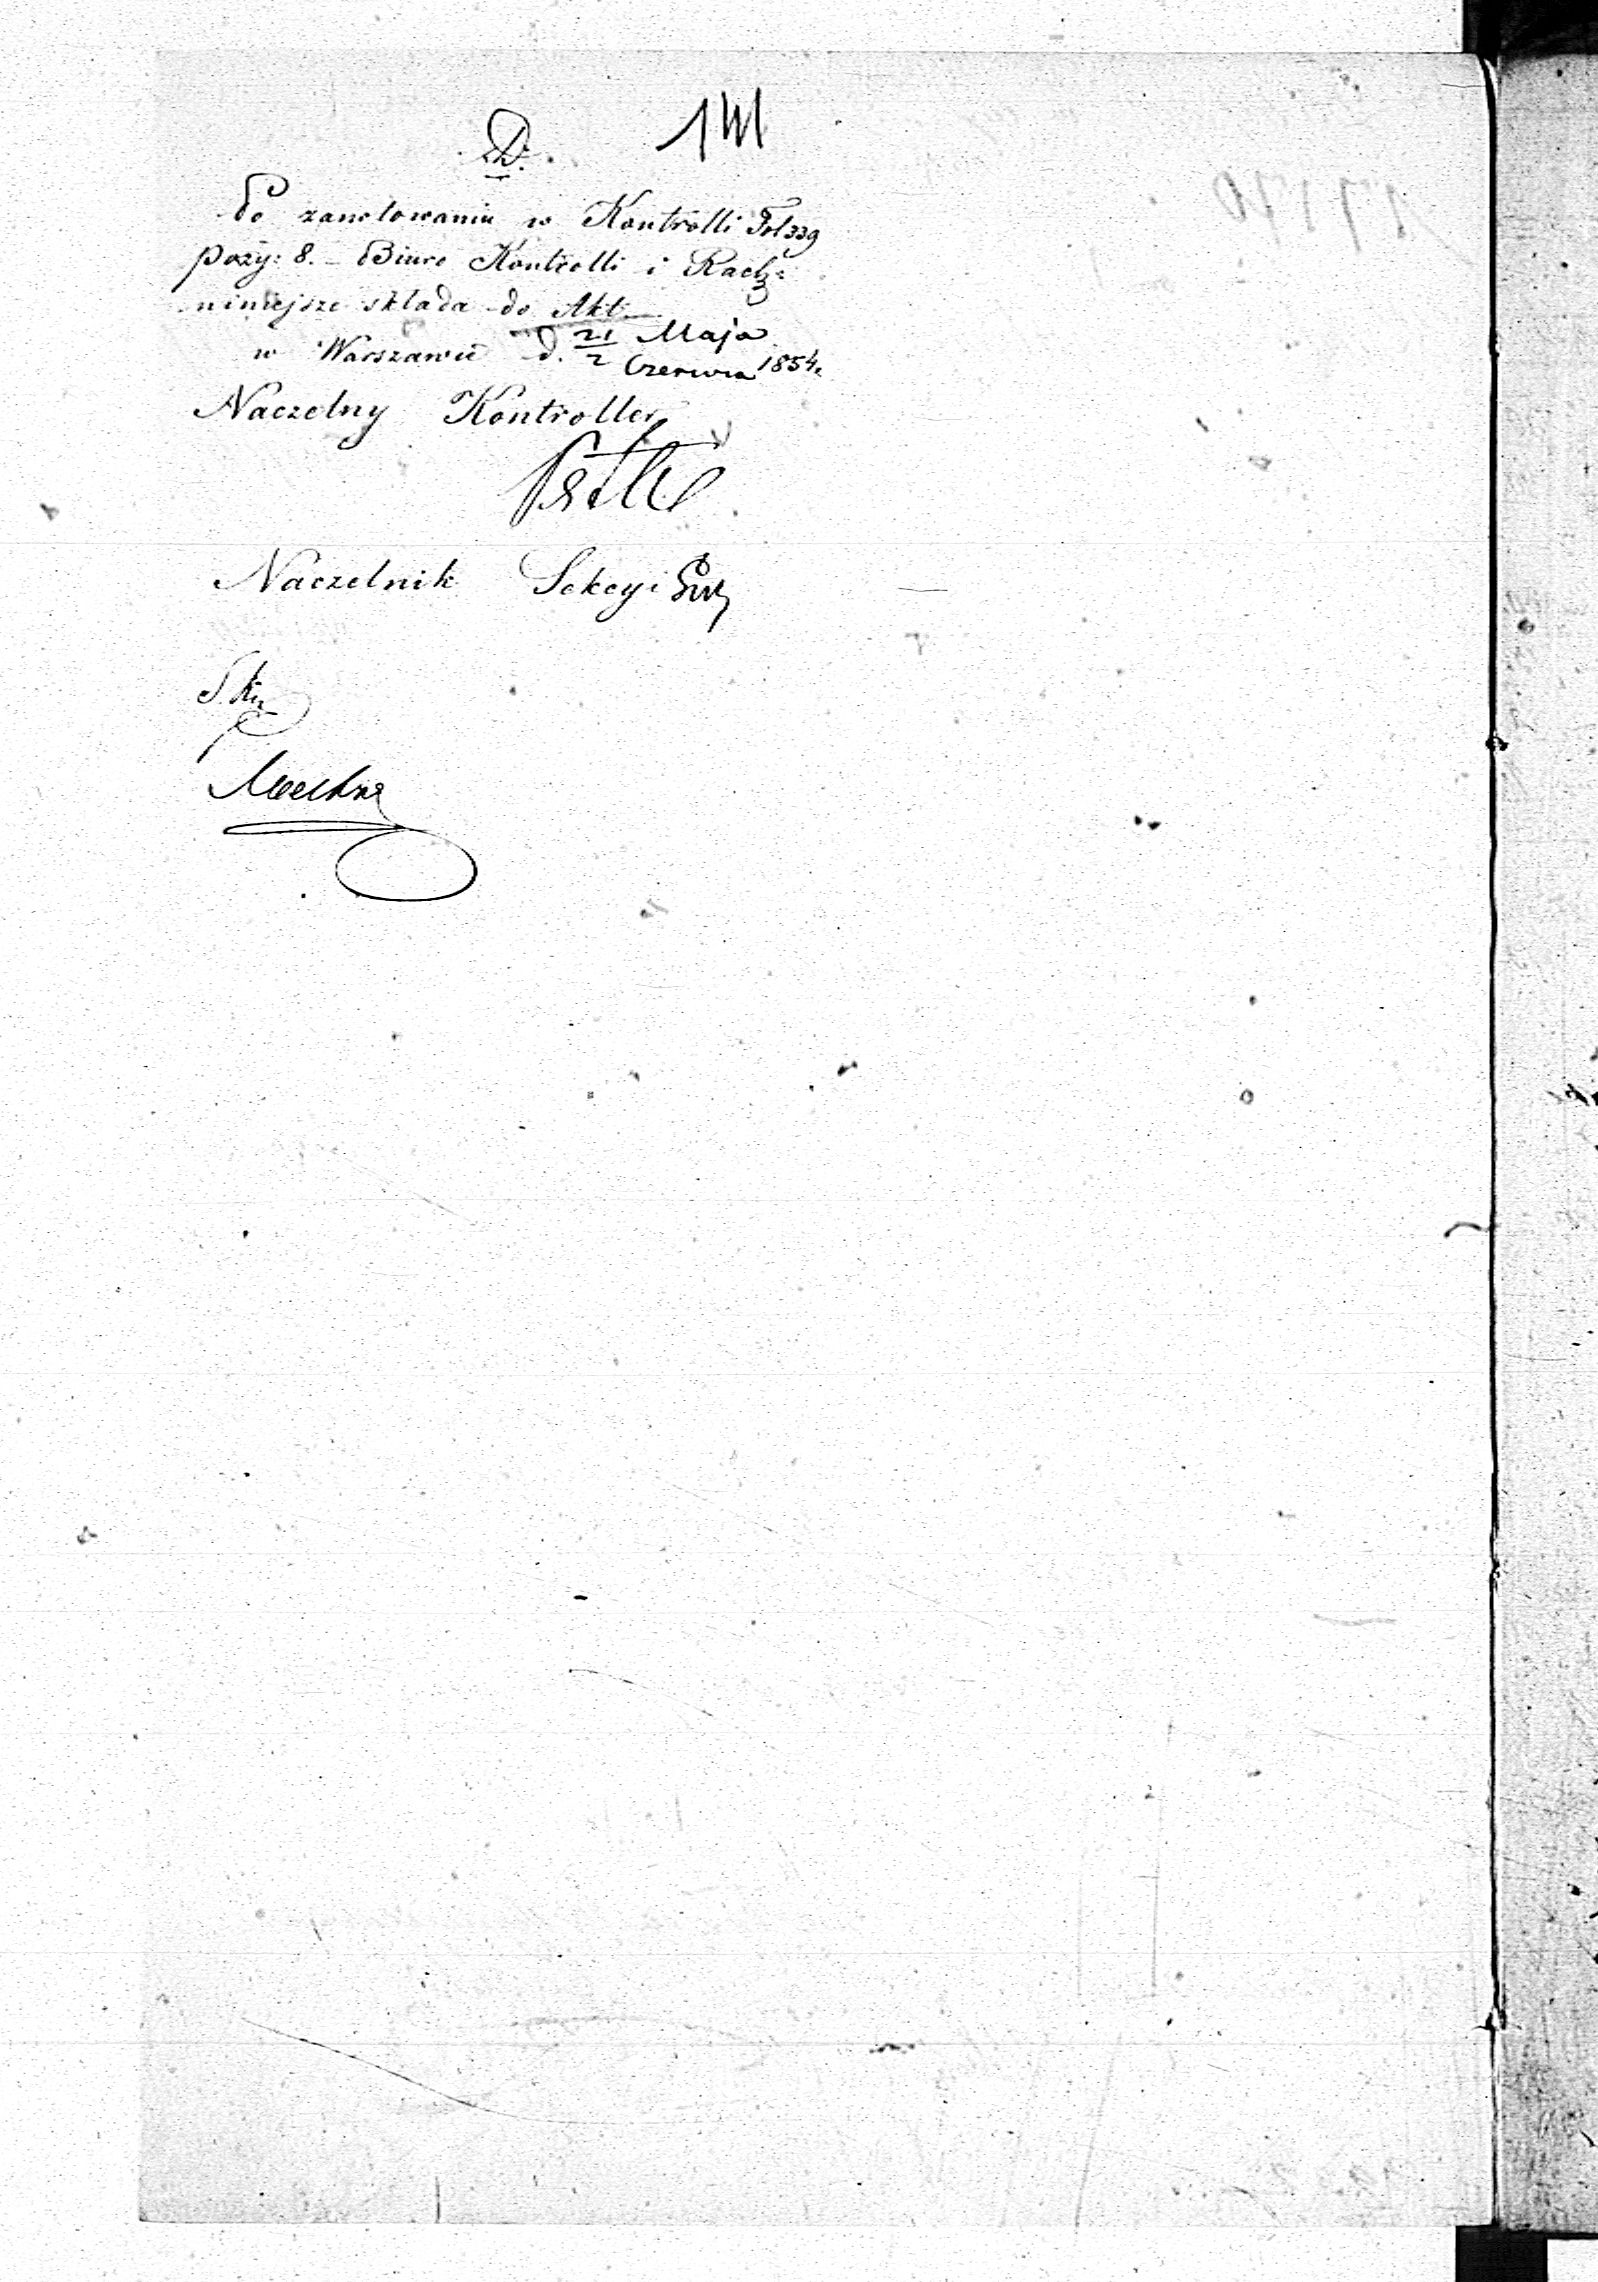 D.
141
Po zanotowaniu w Kontrolli Fol 339
pozy: 8. – Biuro Kontrolli i Rach:
niniejsze składa do Akt
w Warszawie d. 21/2 Maja/Czerwca 1854.
Naczelny Kontroller
Naczelnik Sekcyi